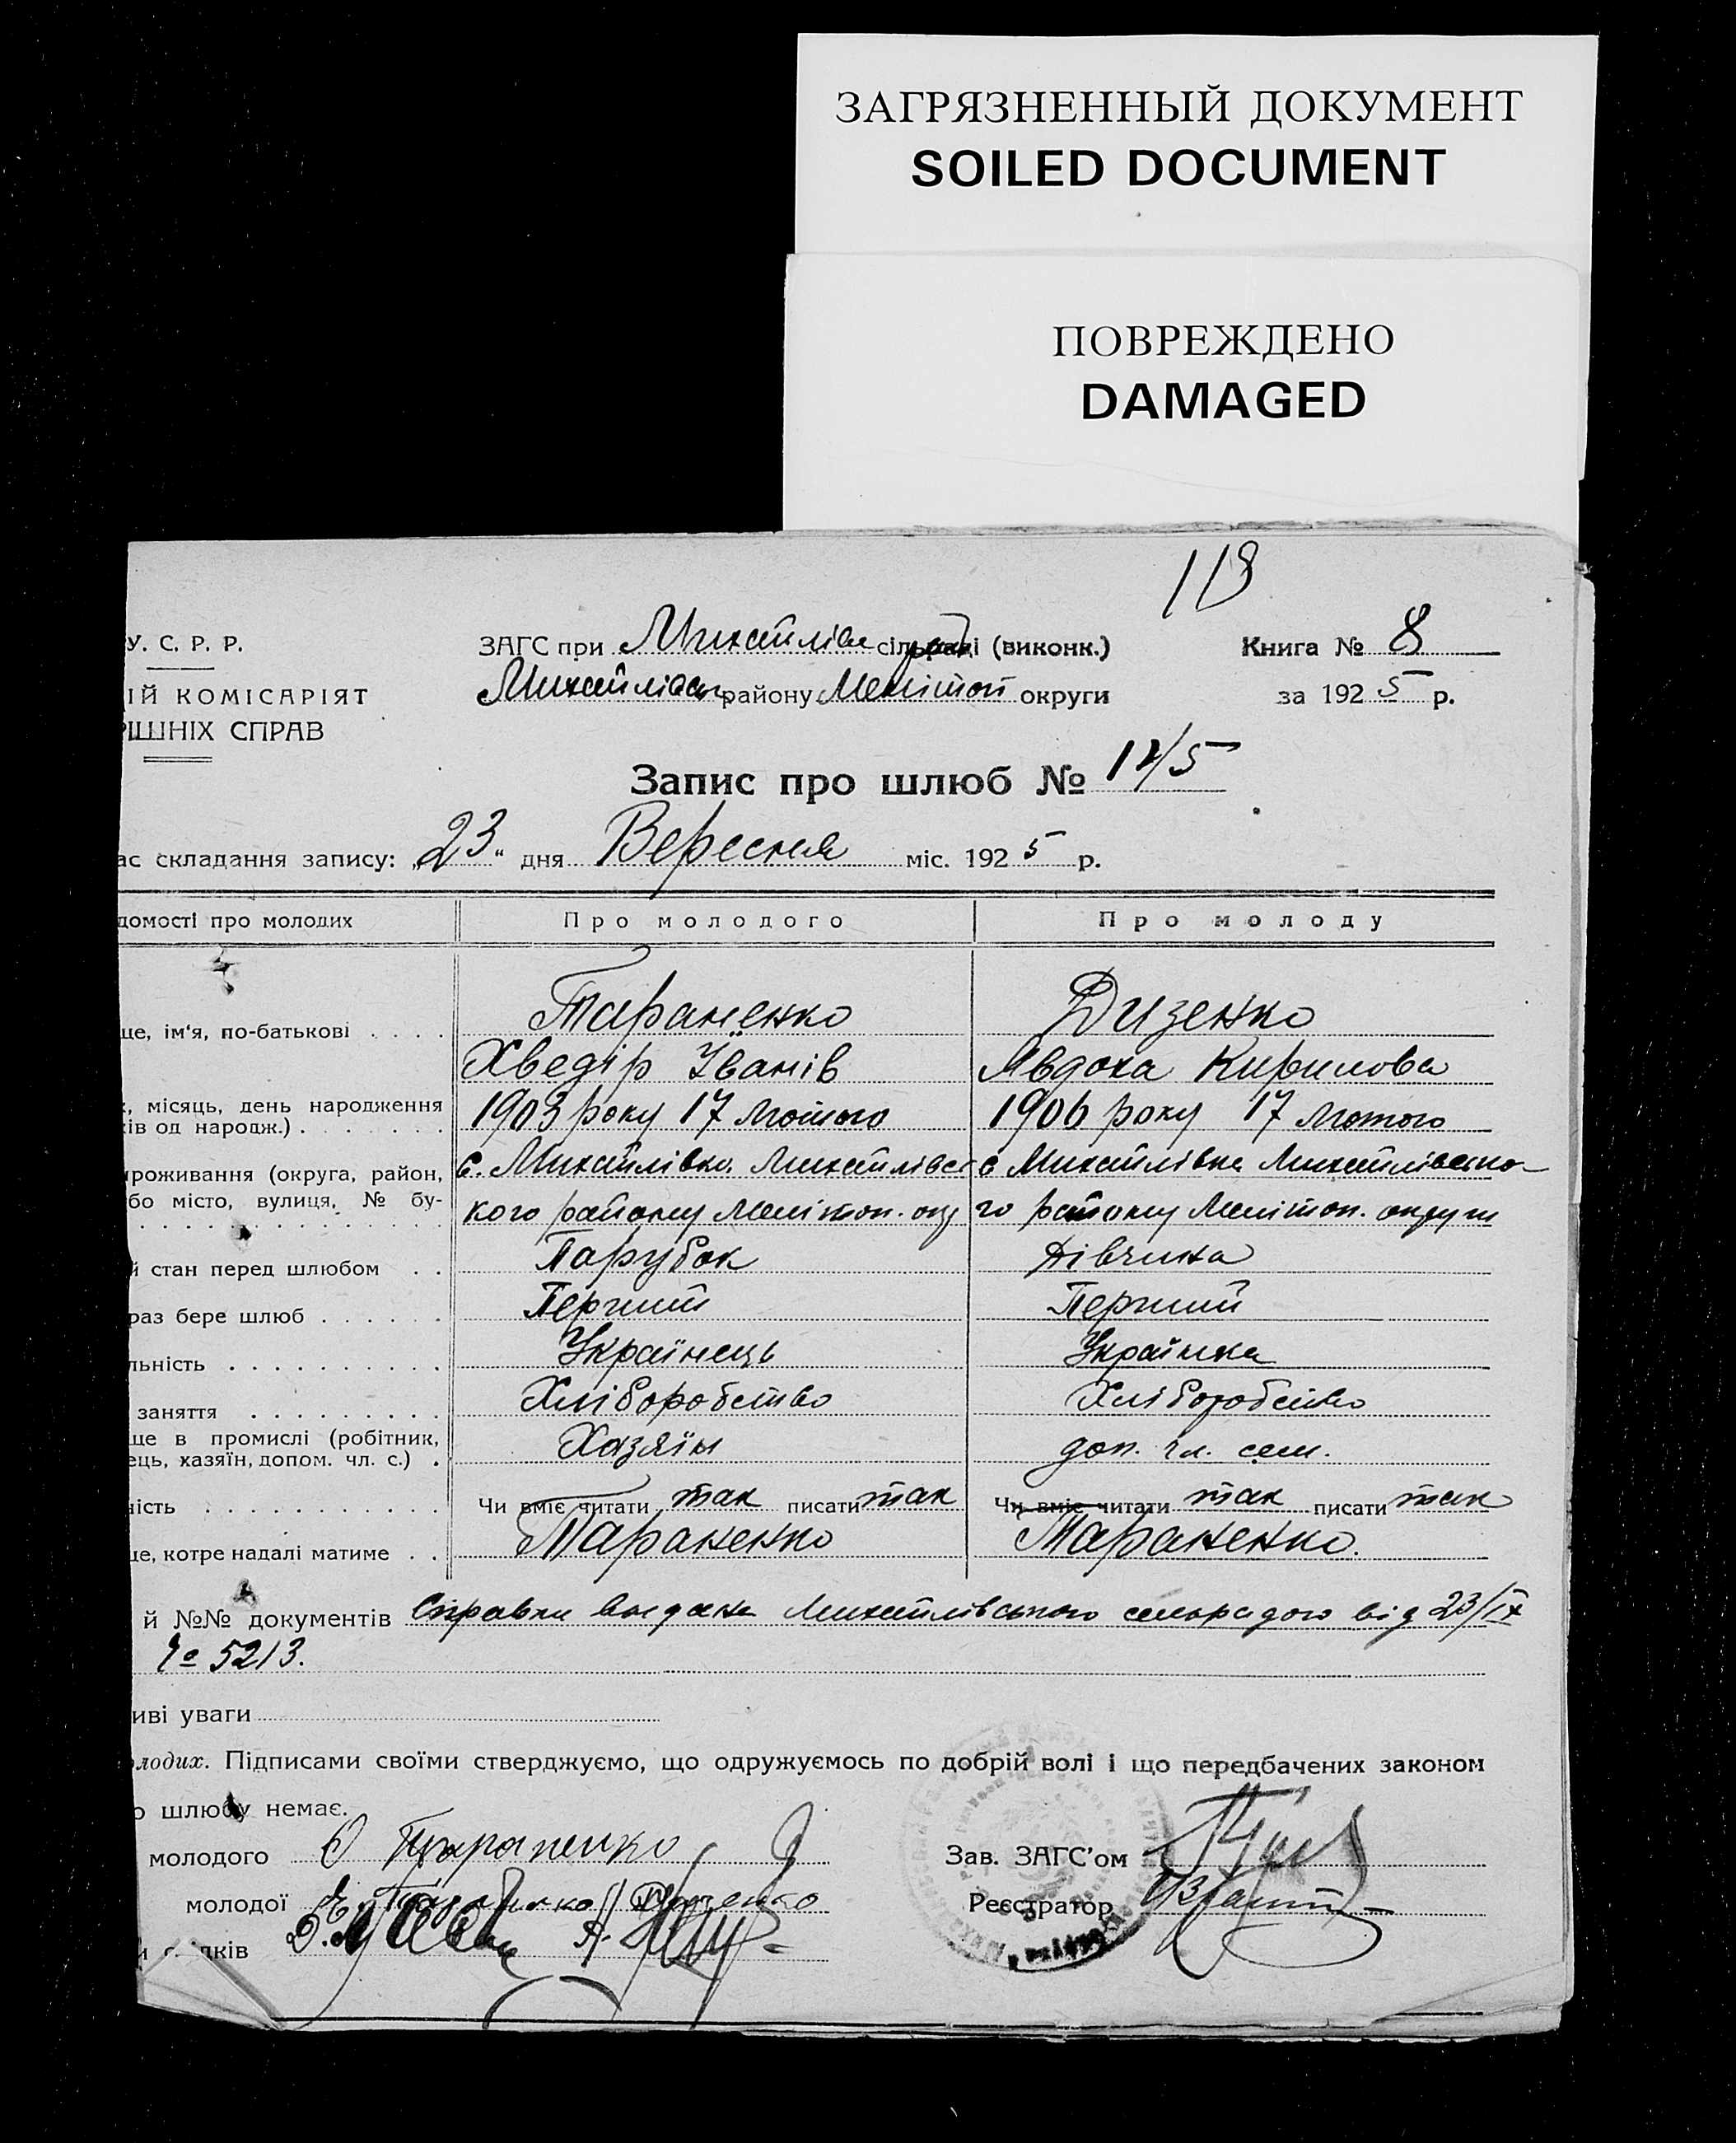 ЗАГРЯЗНЕННЫЙ ДОКУМЕНТ
SOILED DOCUMENT
ПОВРЕЖДЕНО
DAMAGED
118
У. С. Р. Р.
ЗАГС при Михайлівс сільраді (виконк.)
Книга № 8
ІЙ КОМІСАРІЯТ
Михайлівськ району Мелітоп округи
за 1925 р.
РІШНІХ СПРАВ
Запис про шлюб №
ас складання запису: „23“ дня Вересня міс. 1925 р.
домості про молодих
Про молодого
Про молоду
ще, ім'я, по-батькові
Тараненко
Дизенко
Хведір Іванів
Явдоха Кирилова
, місяць, день народження
ів од народж.)
1903 року 17 Лютого
1906 року 17 Лютого
проживання (округа, район,
бо місто, вулиця, № бу-
с. Михайлівка Михайлівсь
кого району Мелітоп. окр
с Михайлівка Михайлівсько-
го району Мелітоп. округи
й стан перед шлюбом
Парубок
Дівчина
раз бере шлюб
Перший
Перший
льність
Українець
Українка
заняття
Хліборобство
Хліборобство
ще в промислі (робітник,
ець, хазяїн, допом. чл. с.)
Хазяїн
доп. чл. сем.
ність
Чи вміє читати так писати так
Чи вміє читати так писати так
ще, котре надалі матиме
Тараненко
Тараненко.
й №№ документів Справки видана Михайлівською сельрадою від 23/IX
№ 5213.
иві уваги
олодих. Підписами своїми стверджуємо, що одружуємось по добрій волі і що передбачених законом
о шлюбу немає.
молодого Тараненко
Зав. ЗАГС'ом
молодої
Реєстратор
и дків